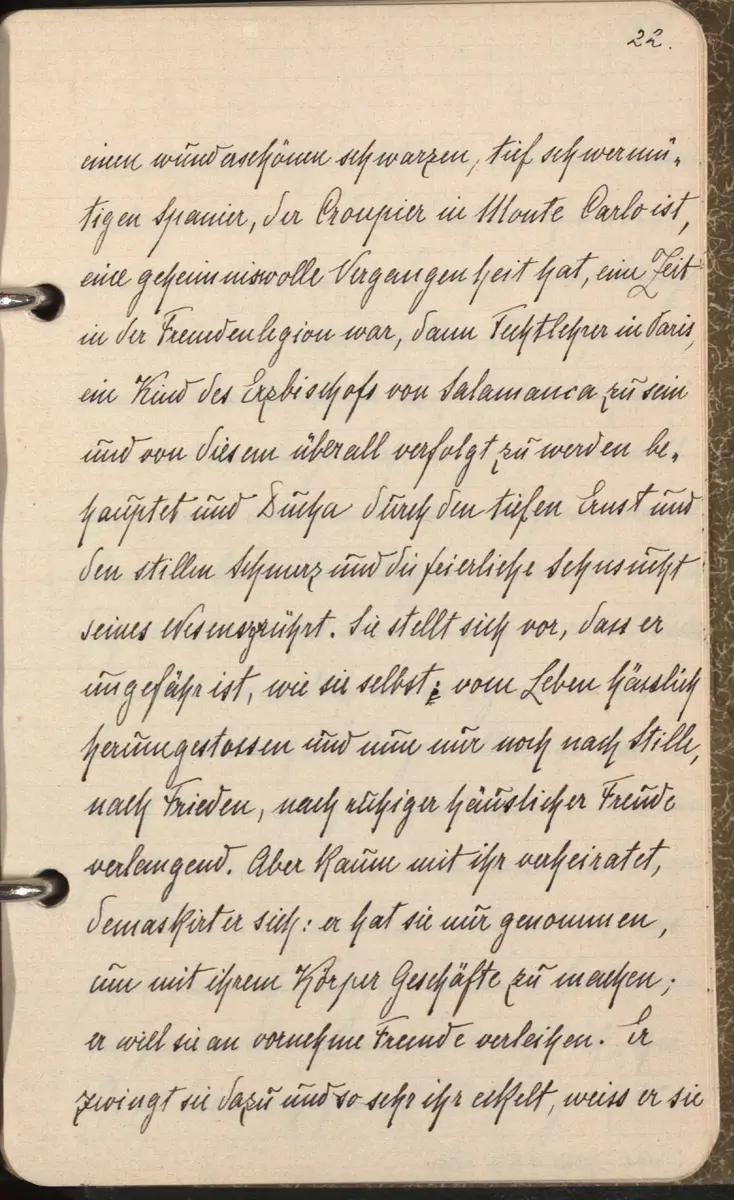 22.
einen wunderschönen schwarzen, tief schwermü„
tigen Spanier, der Croupier in Monte Carlo ist,
eine geheimnisvolle Vergangenheit hat, eine Zeit
in der Fremdenlegion war, dann Fechtlehrer in Paris,
ein Kind des Erzbischofs von Salamanca zu sein
und von diesem überall verfolgt zu werden be„
hauptet und Ducha durch den tiefen Ernst und
den stillen Schmerz und die feierliche Sehnsucht
seines Wesens rührt. Sie stellt sich vor, dass er
ungefähr ist, wie sie selbst: vom Leben hässlich
herumgestossen und nun nur noch nach Stille,
nach Frieden, nach ruhiger häuslicher Freude
verlangend. Aber kaum mit ihr verheiratet,
demaskirt er sich: er hat sie nur genommen,
um mit ihrem Körper Geschäfte zu machen;
er will sie an vornehme Fremde verleihen. Er
zwingt sie dazu und so sehr ihr eckelt, weiss er sie